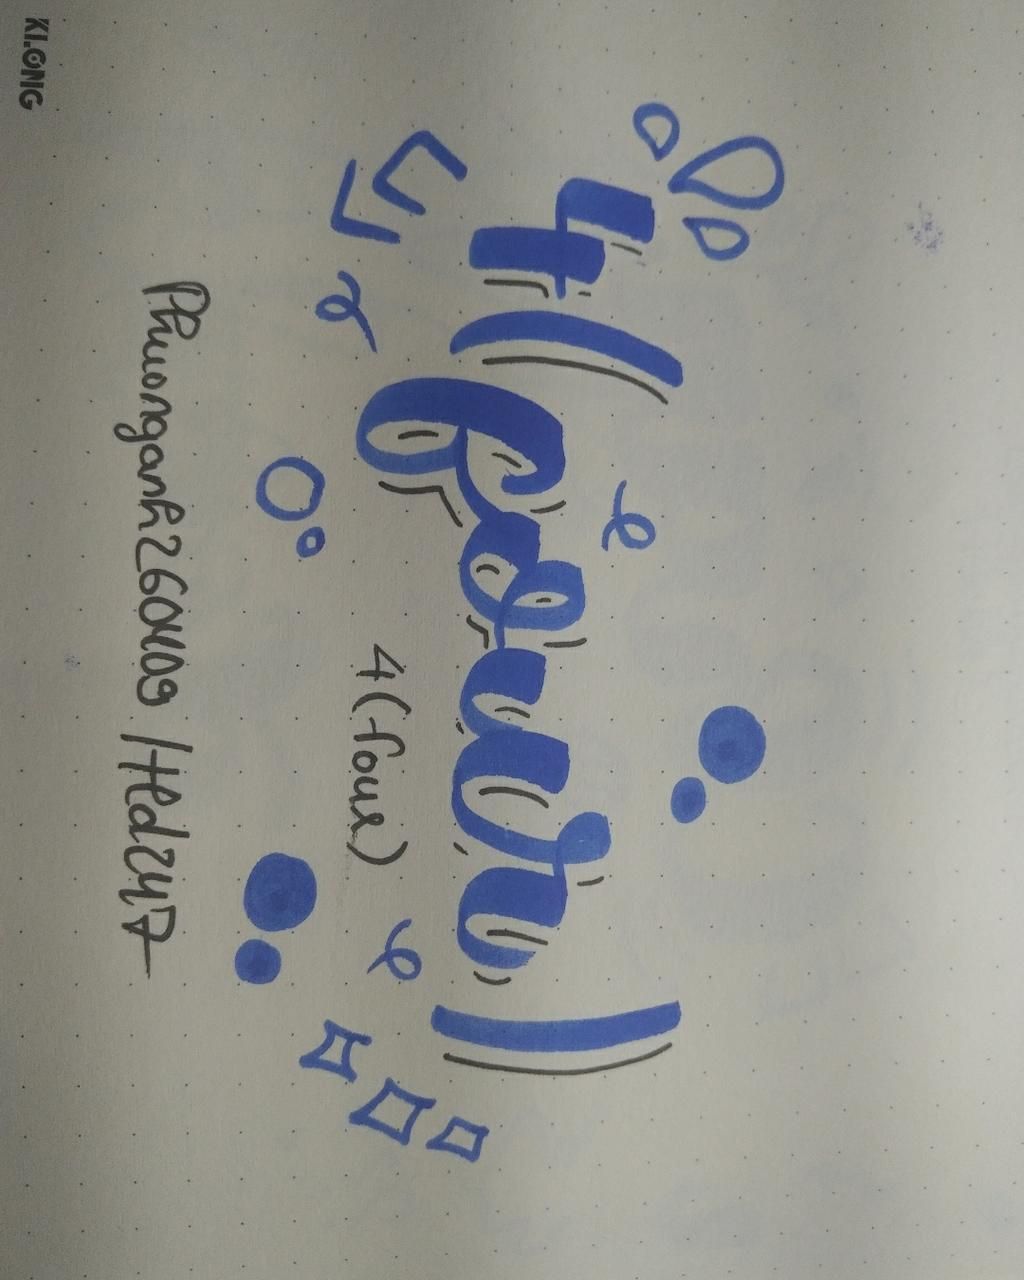 4(four)
4(four)
Phuonganh260409 /Hd247
KLONG